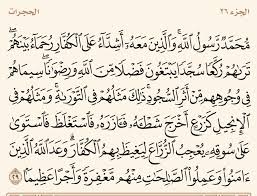 الجزء ٢٦ الحجرات
مُّحَمَّدٌ رَّسُولُ ٱللَّهِ وَٱلَّذِينَ مَعَهُۥٓ أَشِدَّآءُ عَلَى ٱلْكُفَّارِ رُحَمَآءُ بَيْنَهُمْ
تَرَىٰهُمْ رُكَّعًا سُجَّدًا يَبْتَغُونَ فَضْلًا مِّنَ ٱللَّهِ وَرِضْوَٰنًا سِيمَاهُمْ
فِى وُجُوهِهِم مِّنْ أَثَرِ ٱلسُّجُودِ ذَٰلِكَ مَثَلُهُمْ فِى ٱلتَّوْرَىٰةِ وَمَثَلُهُمْ فِى
ٱلْإِنجِيلِ كَزَرْعٍ أَخْرَجَ شَطْـَٔهُۥ فَـَٔازَرَهُۥ فَٱسْتَغْلَظَ فَٱسْتَوَىٰ
عَلَىٰ سُوقِهِۦ يُعْجِبُ ٱلزُّرَّاعَ لِيَغِيظَ بِهِمُ ٱلْكُفَّارَ وَعَدَ ٱللَّهُ ٱلَّذِينَ
ءَامَنُوا۟ وَعَمِلُوا۟ ٱلصَّٰلِحَٰتِ مِنْهُم مَّغْفِرَةً وَأَجْرًا عَظِيمًۢا ٢٩